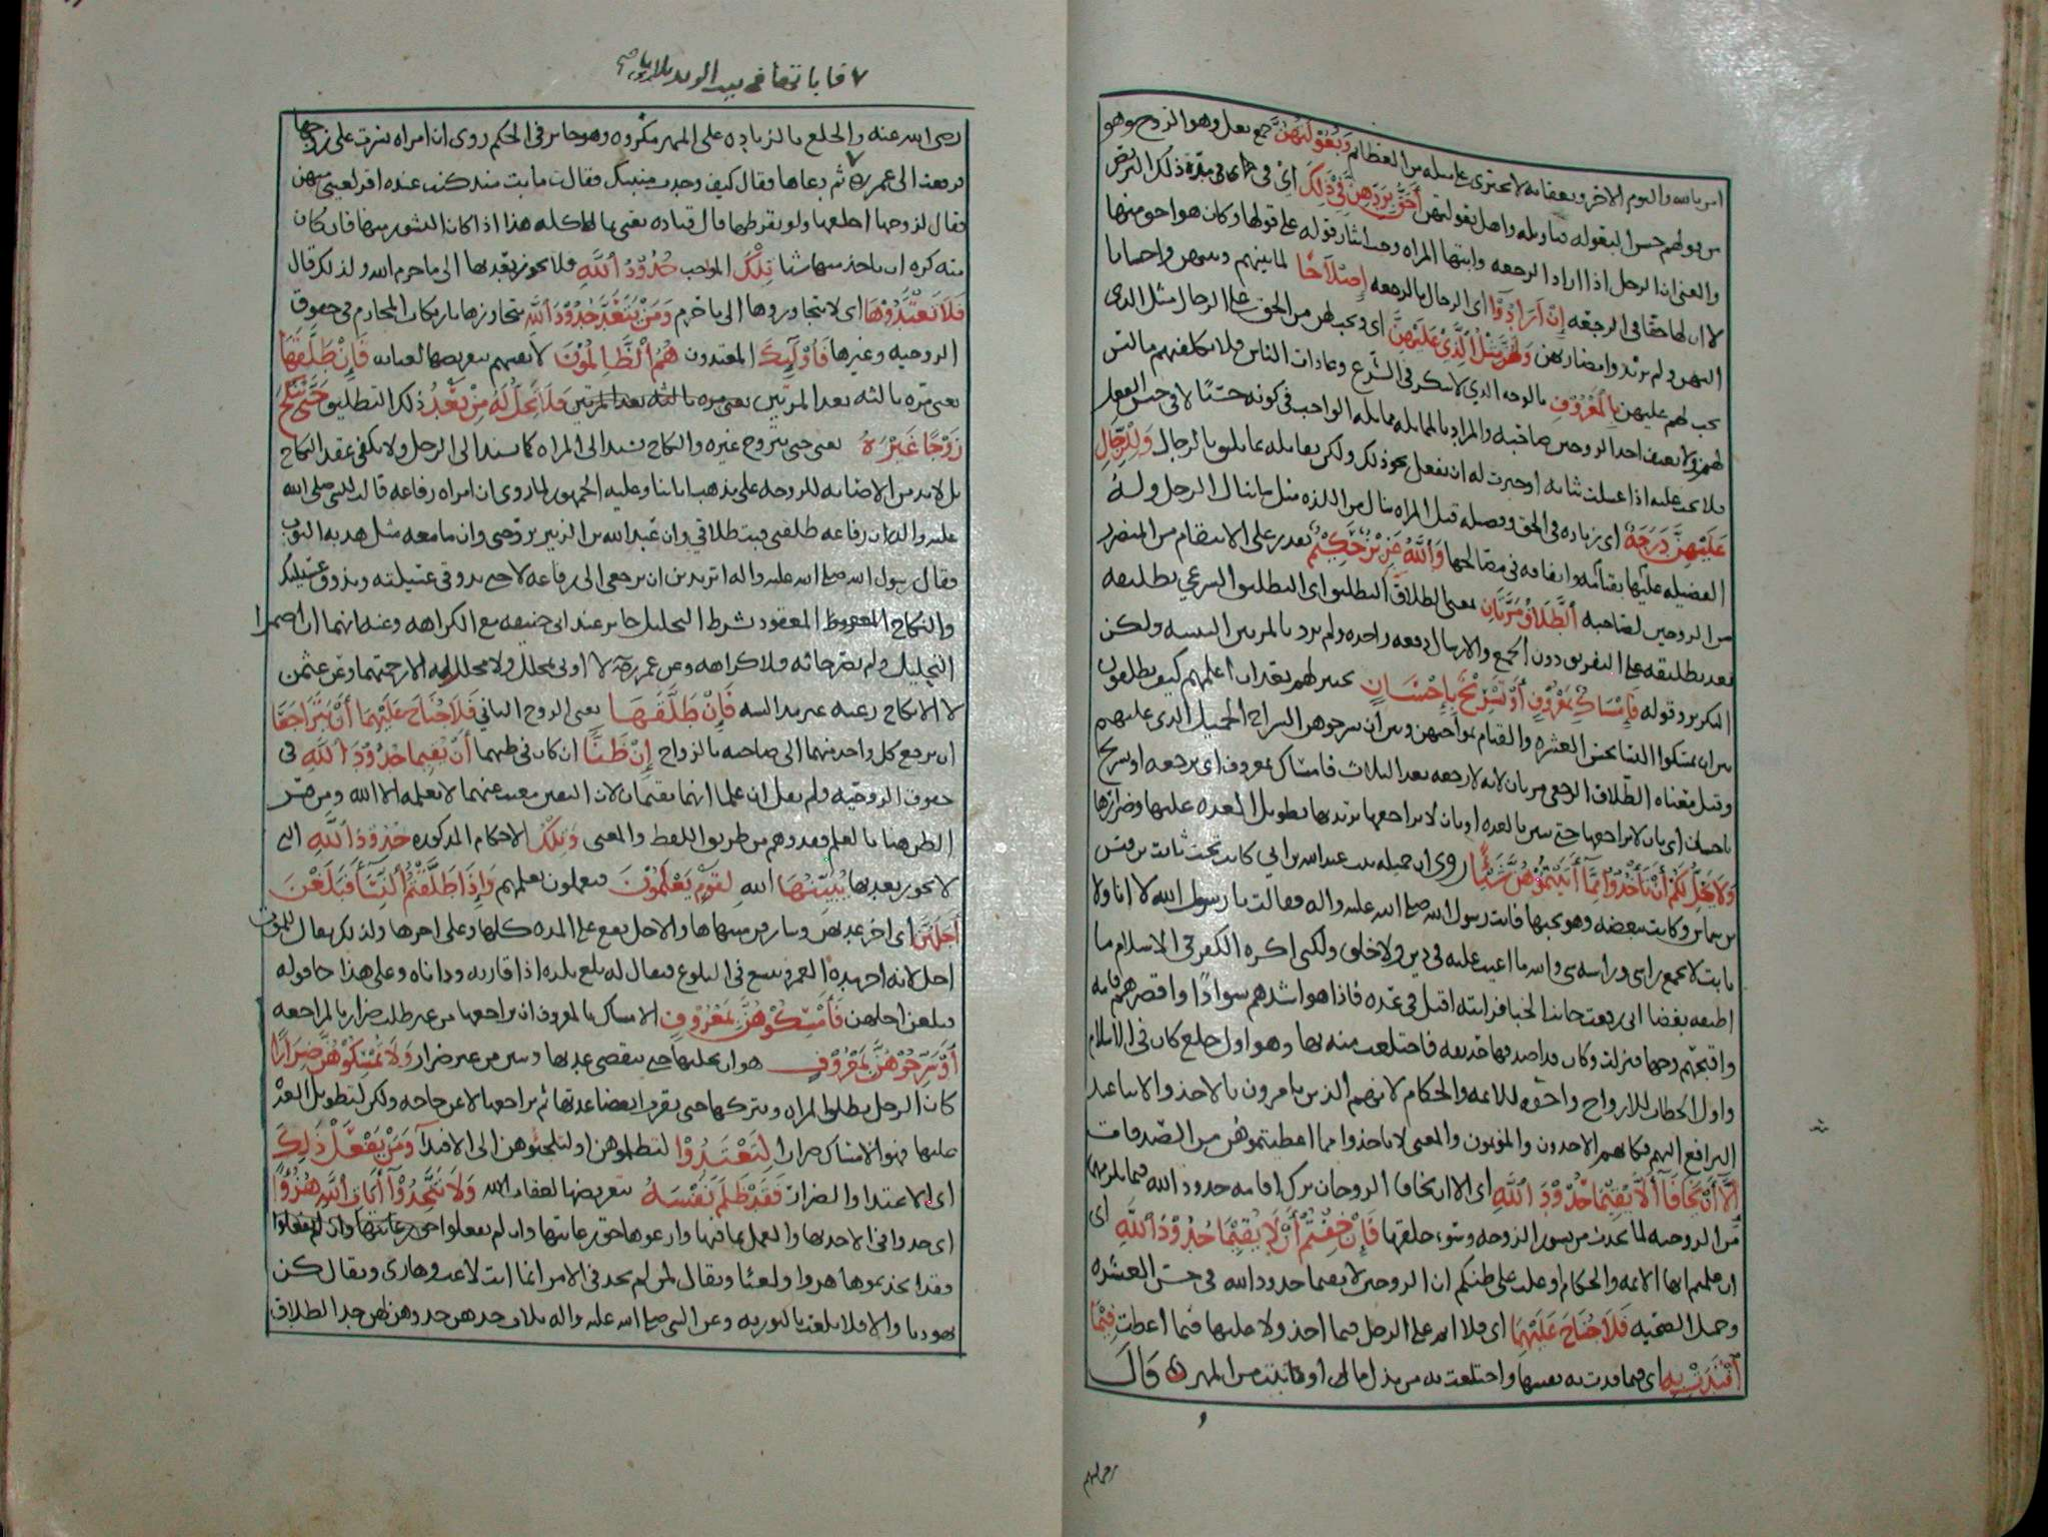 امن بالله واليوم الاخر وبعقابه لا يجترى على مثله من العظائم وبعولتهن جمع بعل وهو الزوج وهو
من قولهم حسن البعوله واهل بعولتهن أحق بردهن في ذلك اى في مدة ذلك التربص
والمعنى ان الرجل اذا اراد الرجعه وابتها المراه وجب ايثار قوله على قولها وكان هو احق منها
لا ان لها حقا في الرجعه إن أرادوا اى الرجال بالرجعه إصلاحا لما بينهم وبينهن واحسانا
اليهن ولم يريدوا مضارتهن ولهن مثل الذي عليهن اى ويجب لهن من الحق على الرجال مثل الذى
يجب لهم عليهن بالمعروف بالوجه الذي لا ينكر في الشرع وعادات الناس فلا يكلفنهم ما ليس
لهن ولا يعنف احد الزوجين صاحبه والمراد بالمماثله مماثله الواجب في كونه حسنا لا في جنس الفعل
فلا يجب عليه اذا غسلت ثيابه او خبزت له ان يفعل نحو ذلك ولكن يقابله بما يليق بالرجال وللرجال
عليهن درجة اى زياده في الحق وفضيله قيل المراه تنال من اللذه مثل ما ينال الرجل وله
الفضيله عليها بقيامه وانفاقه في مصالحها والله عزيز حكيم يقدر على الانتقام من المضر
من الزوجين لصاحبه الطلاق مرتان بمعنى الطلاق التطليق اى التطليق الشرعي تطليقه
بعد تطليقه على التفريق دون الجمع والارسال دفعه واحده ولم يرد بالمرتين التثنيه ولكن
التكرير وقوله فإمساك بمعروف أو تسريح بإحسان تخيير لهم بعد ان اعلمهم كيف يطلقون
بين ان يمسكوا النساء بحسن العشره والقيام بمواجبهن وبين ان يسرحوهن السراح الجميل الذى عليهم
وقيل معناه الطلاق الرجعى مرتان لانه لا رجعه بعد الثلاث فامساك بمعروف اى برجعه او تسريح
باحسان اى بان لا يراجعها حتى تبين بالعده او بان لا يراجعها يريد بها تطويل العده عليها وضرارها
ولا يحل لكم أن تأخذوا مما آتيتموهن شيئا روى ان جميله بنت عبد الله بن ابى كانت تحت ثابت بن قيس
بن شماس وكانت تبغضه وهو يحبها فاتت رسول الله صلى الله عليه واله فقالت يا رسول الله لا انا ولا
ثابت لا يجمع راسى وراسه شى والله ما اعيب عليه في دين ولا خلق ولكنى اكره الكفر في الاسلام ما
اطيقه بغضا انى رفعت جانب الخبا فرايته اقبل في عده فاذا هو اشدهم سوادا واقصرهم قامه
واقبحهم وجها فنزلت وكان قد اصدقها حديقه فاختلعت منه بها وهو اول خلع كان في الاسلام
واول الخطاب للازواج واخره للائمه والحكام لانهم الذين يامرون بالاخذ والايتا عند
الترافع اليهم فكانهم الاخذون والمؤتون والمعنى لا تاخذوا مما اعطيتموهن من الصدقات
إلا أن يخافا ألا يقيما حدود الله اى الا ان يخافا الزوجان ترك اقامه حدود الله فيما يلزمهما
من الزوجيه لما يحدث من نشوز الزوجه وسوء خلقها فإن خفتم أن لا يقيما حدود الله اى
ان علمتم ايها الائمه والحكام او غلب على ظنكم ان الزوجين لا يقيما حدود الله في حسن العشره
وجميل الصحبه فلا جناح عليهما اى فلا اثم على الرجل فيما اخذ ولا عليها فيما اعطت فيما
افتدت به اى فيما فدت به نفسها واختلعت به من بذل مال او ما ثبت من المهر قال
رضى الله عنه والخلع بالزياده على المهر مكروه وهو جايز في الحكم روى ان امراه نشزت على زوجها
فرفعت الى عمر ثم دعاها فقال كيف وجدت مبيتك فقالت ما بت منذ كنت عنده اقر لعينى منهن
فقال لزوجها اخلعها ولو بقرطها قال قتاده يعنى بمالها كله هذا اذا كان النشوز منها فان كان
منه كره ان ياخذ منها شيئا تلك المواجب حدود الله فلا يجوز تعديها الى ما حرم الله ولذلك قال
فلا تعتدوها اى لا تتجاوزوها الى ما حرم ومن يتعد حدود الله يتجاوزها بارتكاب المحارم في حقوق
الزوجيه وغيرها فأولئك المعتدون هم الظالمون لانفسهم بتعريضها لعذابه فإن طلقها
يعنى مره ثالثه بعد المرتين يعنى مره ثالثه بعد المرتين فلا تحل له من بعد ذلك التطليق حتى تنكح
زوجا غيره يعنى حتى تتزوج غيره والنكاح يسند الى المراه كما يسند الى الرجل ولا يكفى عقد النكاح
بل لا بد من الاصابه للزوجه على مذهب اماننا وعليه الجمهور لما روى ان امراه رفاعه قالت للنبى صلى الله
عليه واله ان رفاعه طلقنى فبت طلاقي وان عبد الله بن الزبير تزوجنى وان ما معه مثل هدبه الثوب
فقال رسول الله صلى الله عليه واله اتريدين ان ترجعى الى رفاعه لا حتى تذوقي عسيلته ويذوق عسيلتك
والنكاح المعقود بشرط التحليل جايز عند ابى حنيفه مع الكراهه وعنه انهما ان اضمرا
التحليل ولم يصرحا به فلا كراهه وعن عمر لا اوتى بمحلل ولا محلل له الا رجمتهما وعن عثمن
لا الا نكاح رغبه غير مدالسه فإن طلقها يعنى الزوج الثاني فلا جناح عليهما أن يتراجعا
ان يرجع كل واحد منهما الى صاحبه بالزواج إن ظنا ان كان في ظنهما أن يقيما حدود الله في
حقوق الزوجيه ولم يقل ان علما انهما يقيمان لان اليقين مغيب عنهما لا يعلمه الا الله ومن فسر
الظن هنا بالعلم فقد وهم من طريق اللفظ والمعنى وتلك الاحكام المذكوره حدود الله التى
لا يجوز تعديها يبينها الله لقوم يعلمون فيعملون بعلمهم وإذا طلقتم النساء فبلغن
أجلهن اى اخر عدتهن وشارفن منتهاها والاجل يقع على المده كلها وعلى اخرها ولذلك يقال للموت
اجل لانه اخر مده العمر ويتسع في البلوغ فيقال له بلغ بلده اذا قاربه وداناه وعلى هذا جا قوله
فبلغن اجلهن فأمسكوهن بمعروف الامساك بالمعروف ان يراجعها من غير طلب ضرار بالمراجعه
أو سرحوهن بمعروف هو ان يخليها حتى تنقضى عدتها وتبين من غير ضرار ولا تمسكوهن ضرارا
كان الرجل يطلق المراه ويتركها حتى يقرب انقضا عدتها ثم يراجعها لا عن حاجه ولكن لتطويل العده
عليها فهو الامساك ضرارا لتعتدوا لتظلموهن او لتلجئوهن الى الافتدا ومن يفعل ذلك
اى الاعتدا والضرار فقد ظلم نفسه بتعريضها لعقاب الله ولا تتخذوا آيات الله هزوا
اى جدوا في الاخذ بها والعمل بما فيها وارعوها حق رعايتها وان لم تفعلوا
فقد اتخذتموها هزوا ولعبا ويقال لمن لم يجد في الامر انما انت لاعب وهازى ويقال كن
يهوديا والا فلا تلعب بالتوريه وعن النبى صلى الله عليه واله ثلاث جدهن جد وهزلهن جد الطلاق